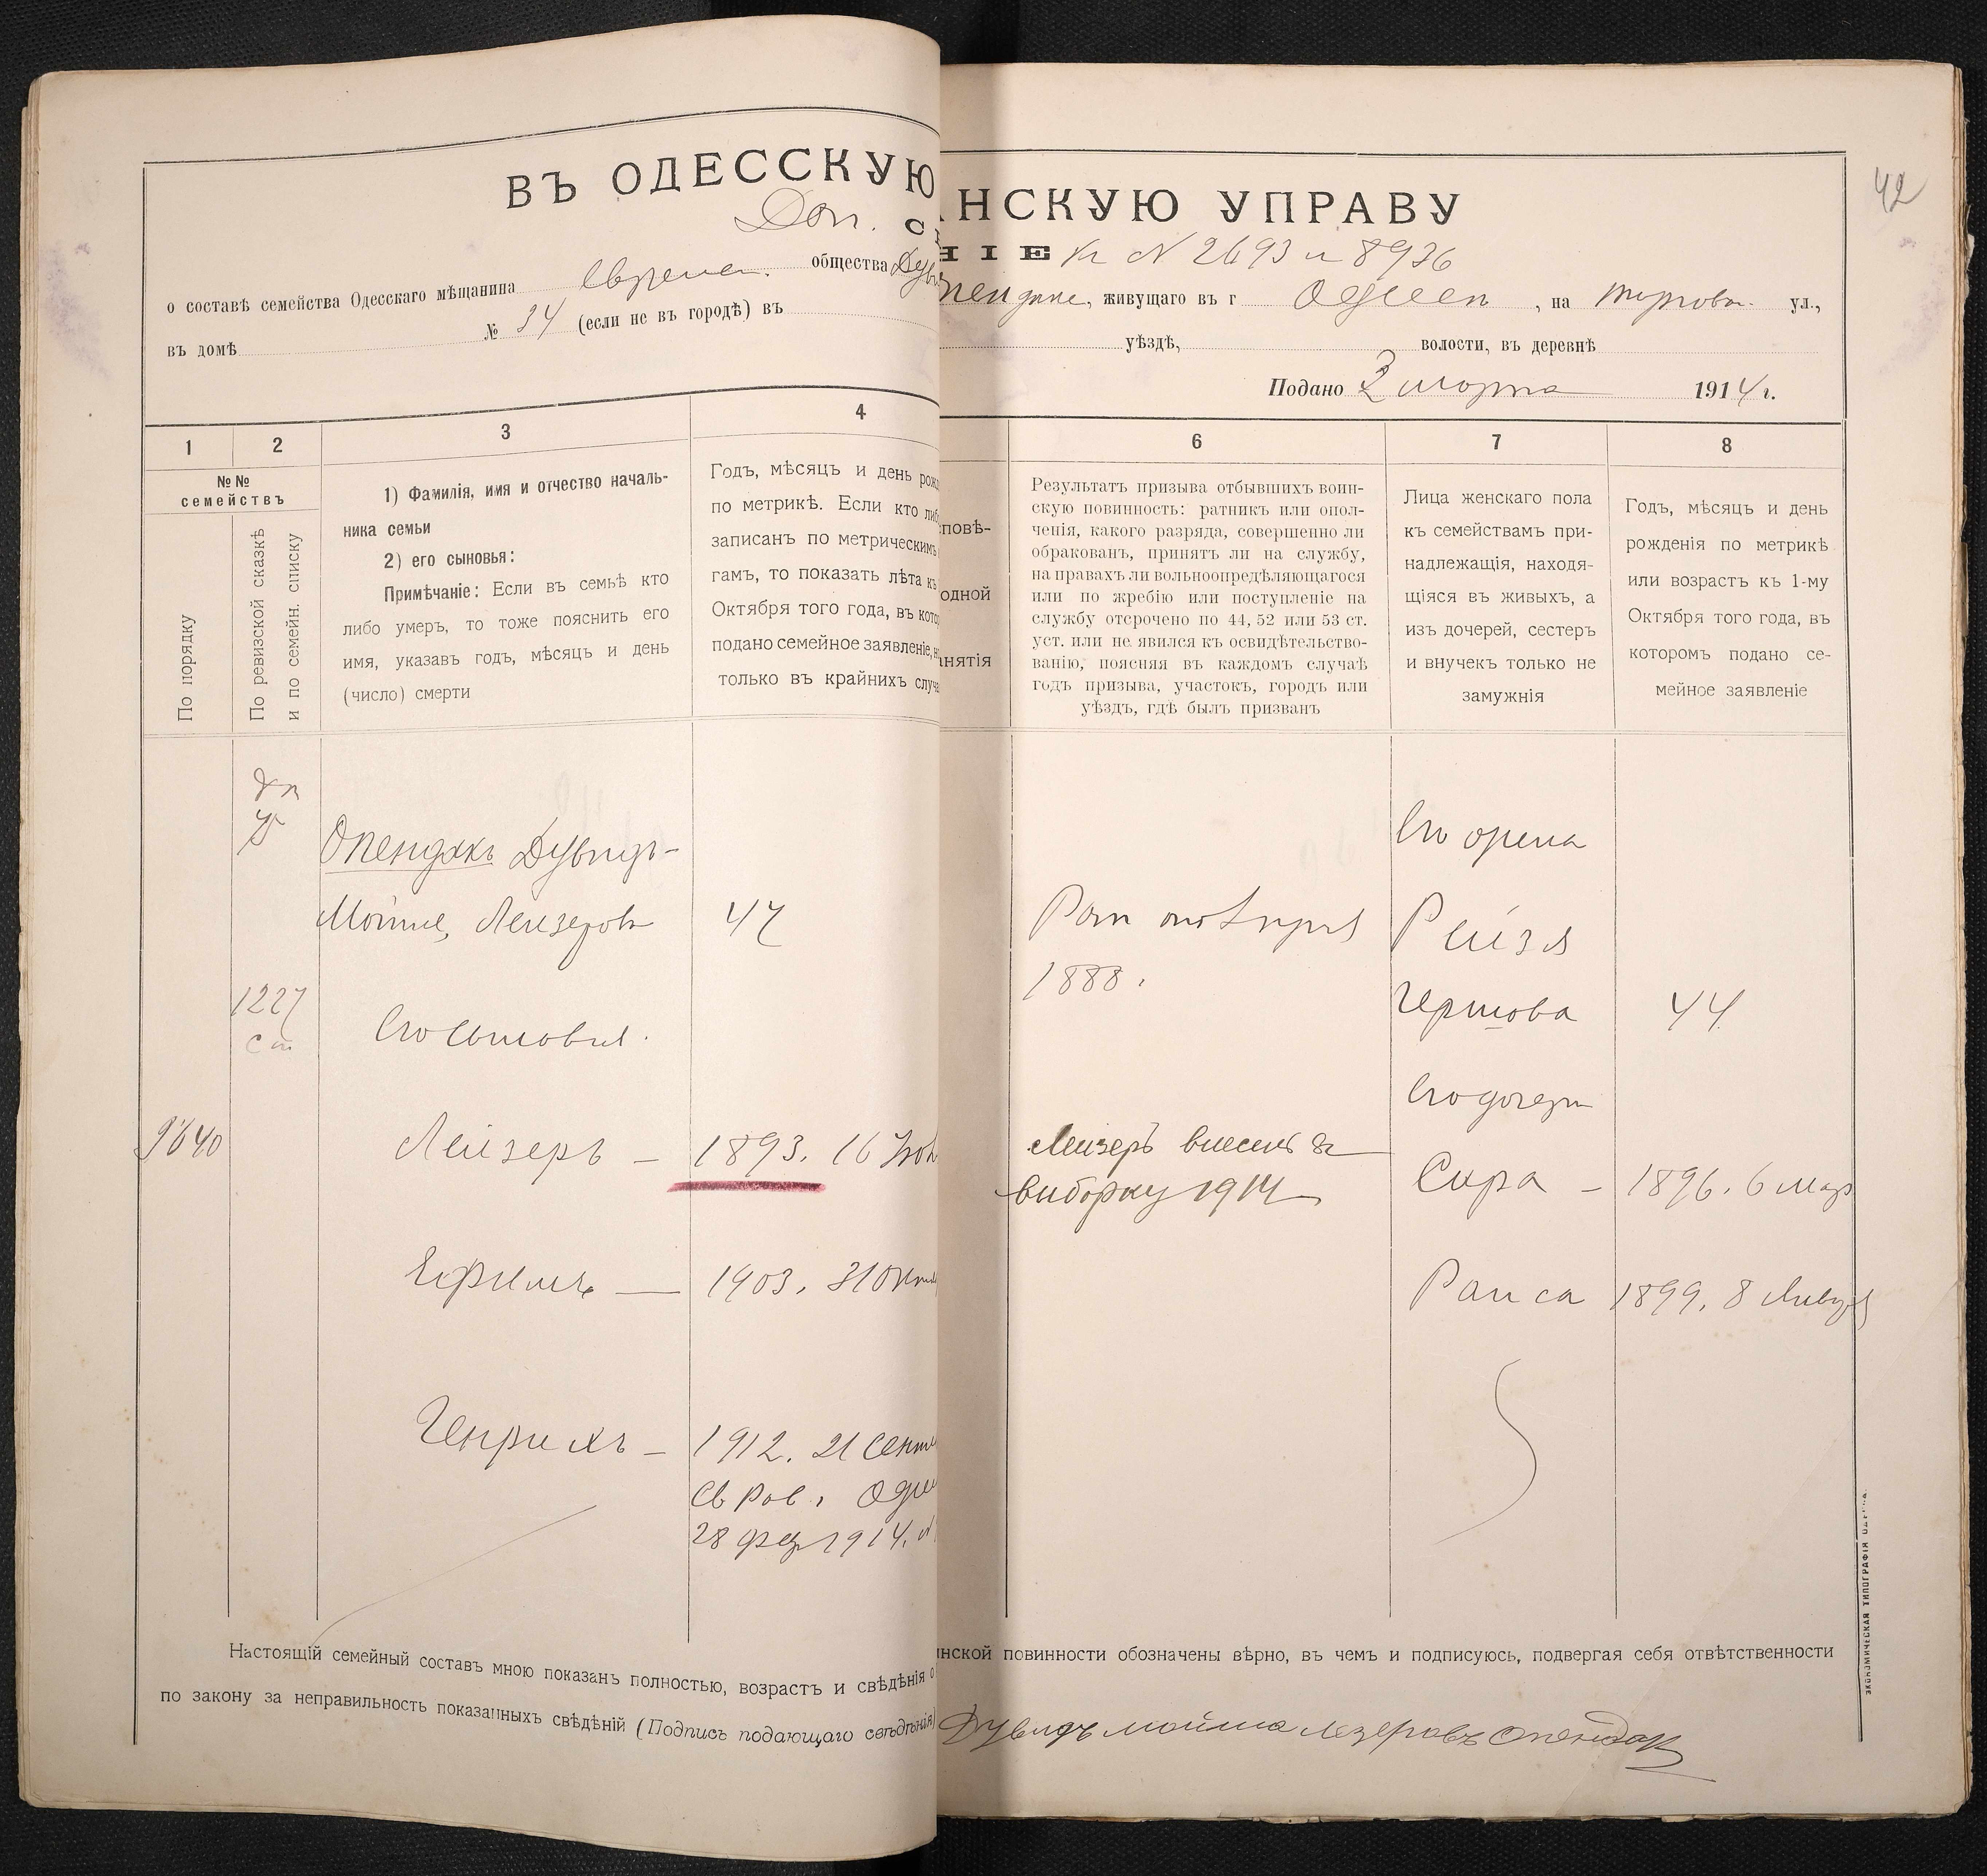 42
ВЪ ОДЕССКУЮ
АНСКУЮ УПРАВУ
Доп.
НІЕ к № 2693 и 8936
о составѣ семейства Одесскаго мѣщанина еврейск. общества Дув
живущаго въ г Одессѣ, на Торгов. ул.,
въ домѣ № 34 (если не въ городѣ) въ
уѣздѣ, волости, въ деревнѣ
Подано 3 марта 1914 г.
1 2 3 4 6 7 8
№№
семействъ
По порядку
По ревизской сказкѣ
и по семейн. списку
1) Фамилія, имя и отчество началь-
ника семьи
2) его сыновья:
Примѣчаніе: Если въ семьѣ кто
либо умеръ, то тоже пояснить его
имя, указавъ годъ, мѣсяцъ и день
(число) смерти
Годъ, мѣсяцъ и день рож
по метрикѣ. Если кто либ
записанъ по метрическимъ
гамъ, то показать лѣта къ
Октября того года, въ кото
подано семейное заявленіе, н
только въ крайнихъ случа
повѣ-
одной
нятія
Результатъ призыва отбывшихъ воин-
скую повинность: ратникъ или опол-
ченія, какого разряда, совершенно ли
обракованъ, принятъ ли на службу,
на правахъ ли вольноопредѣляющагося
или по жребію или поступленіе на
службу отсрочено по 44, 52 или 53 ст.
уст. или не явился къ освидѣтельство-
ванію, поясняя въ каждомъ случаѣ
годъ призыва, участокъ, городъ или
уѣздъ, гдѣ былъ призванъ
Лица женскаго пола
къ семействамъ при-
надлежащія, находя-
щіяся въ живыхъ, а
изъ дочерей, сестеръ
и внучекъ только не
замужнія
Годъ, мѣсяцъ и день
рожденія по метрикѣ
или возрастъ къ 1-му
Октября того года, въ
которомъ подано се-
мейное заявленіе
Опендакъ Дувидъ-
Мойше, Лейзеровъ 47
1888.
Его жена
Рейзя
Гершова 44
1227
Его сыновья.
Его дочери
9640
Лейзеръ – 1893. 16
Лейзеръ внесенъ въ
выборку 1914
Сура – 1896. 6 мар
Ефимъ — 1903. 31 Октя
Раиса 1899. 8 Января
Генрихъ – 1912. 21 Сентя
Св Рав. Одес
28 фев 1914. №
Настоящій семейный составъ мною показанъ полностью, возрастъ и свѣдѣнія о
инской повинности обозначены вѣрно, въ чемъ и подписуюсь, подвергая себя отвѣтственности
по закону за неправильность показанныхъ свѣдѣній (Подпись подающаго свѣдѣнія)
Дувидъ мойша лезеровъ опендак
ЭКОНОМИЧЕСКАЯ ТИПОГРАФІЯ